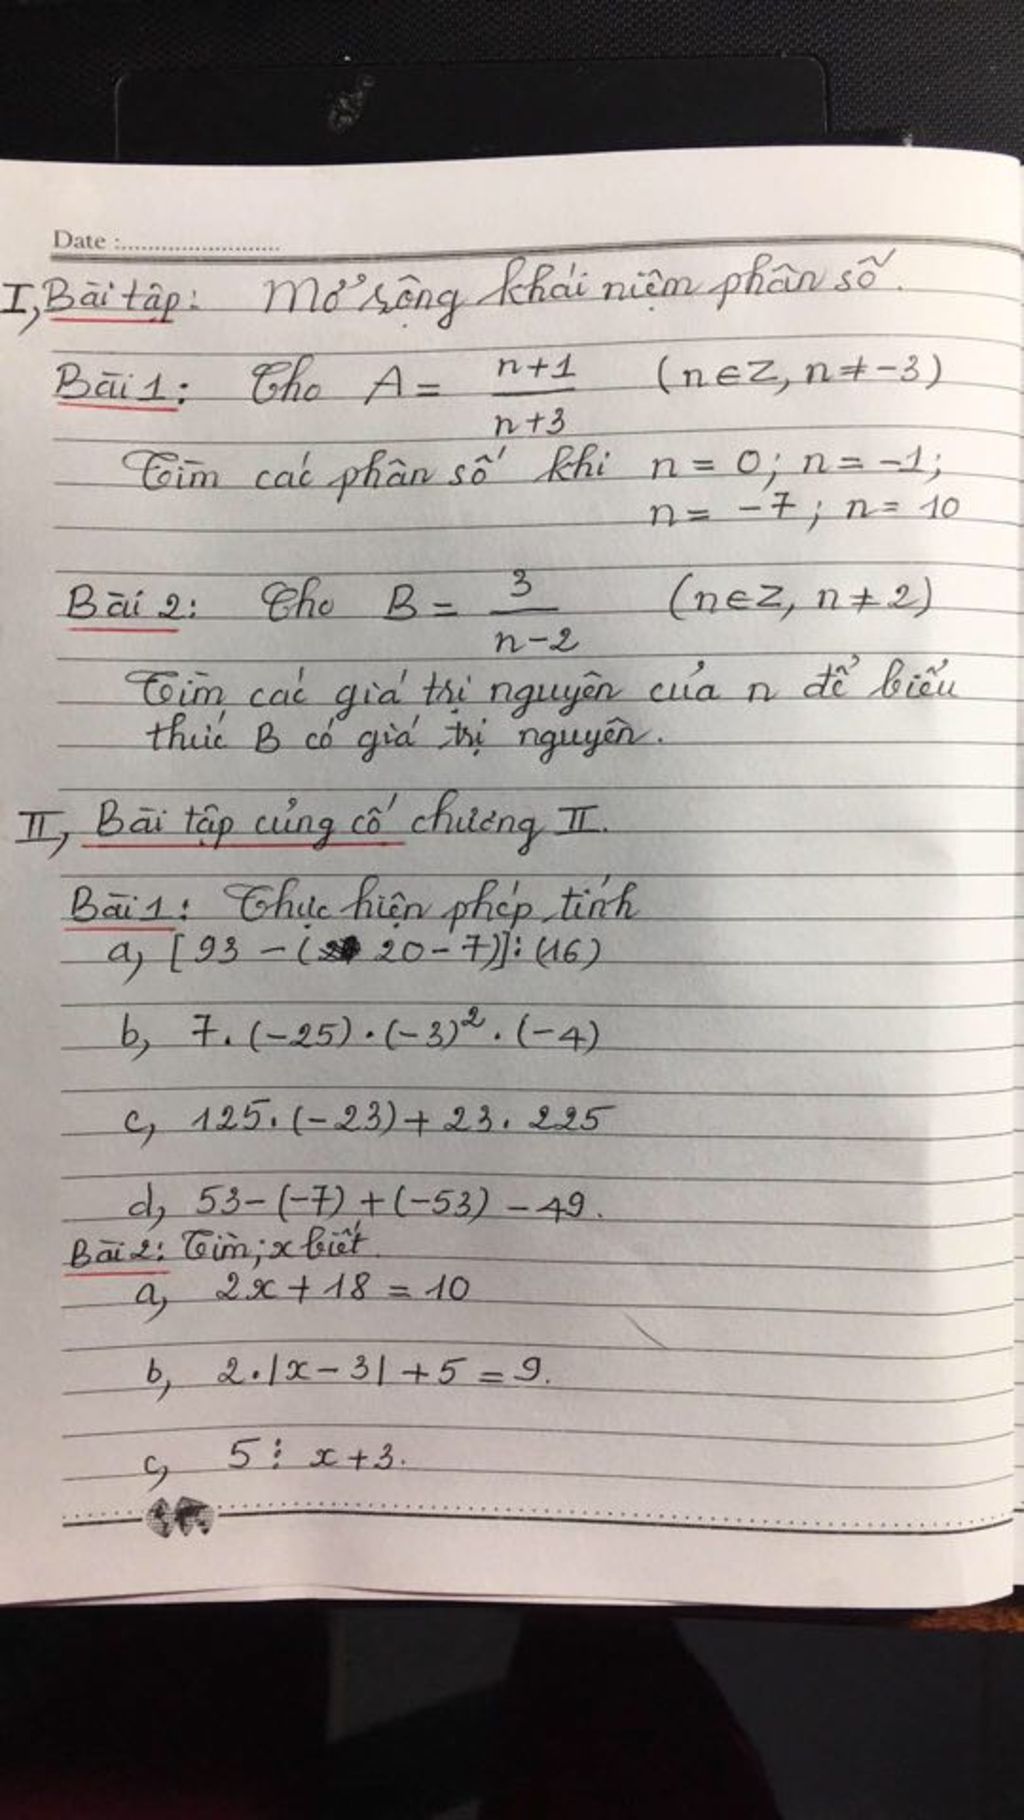 Date :........................
I, Bài tập: Mở rộng khái niệm phân số.
Bài 1: Cho A = n+1/n+3 (n∈Z, n≠-3)
Tìm các phân số khi n = 0; n = -1;
n = -7; n = 10
Bài 2: Cho B = 3/n-2 (n∈Z, n≠2)
Tìm các giá trị nguyên của n để biểu
thức B có giá trị nguyên.
II, Bài tập củng cố chương II.
Bài 1: Thực hiện phép tính
a, [93 - (20 - 7)]:(16)
b, 7.(-25).(-3)².(-4)
c, 125.(-23) + 23.225
d, 53-(-7)+(-53)-49.
Bài 2: Tìm; x biết
a, 2x + 18 = 10
b, 2.|x-3| + 5 = 9.
c, 5 ⋮ x+3.